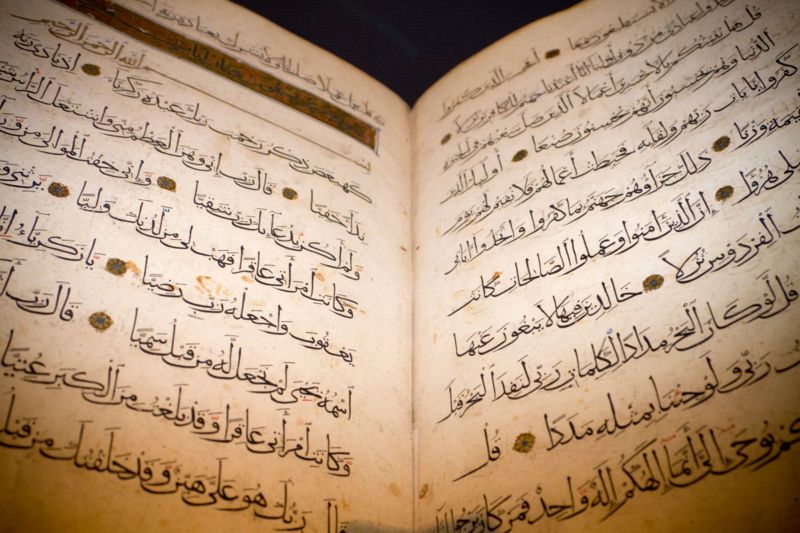 أفحسب الذين كفروا
من دوني أولياء إنا أعتدنا جهنم للكافرين نزلا
قل هل ننبئكم بالأخسرين أعمالا الذين ضل سعيهم في الحياة
الدنيا وهم يحسبون أنهم يحسنون صنعا أولئك الذين
كفروا بآيات ربهم ولقائه فحبطت أعمالهم فلا نقيم لهم يوم
القيمة وزنا ذلك جزاؤهم جهنم بما كفروا واتخذوا آياتي
ورسلي هزوا إن الذين آمنوا وعملوا الصالحات كانت
الفردوس نزلا خالدين فيها لا يبغون عنها
قل لو كان البحر مدادا لكلمات ربي لنفد البحر قبل
كلمات ربي ولو جئنا بمثله مددا قل
يوحى إلي أنما إلهكم إله واحد فمن كان يرجوا
فليعمل عملا صالحا ولا يشرك بعبادة ربه
بسم الله الرحمن الرحيم
كهيعص ذكر رحمت ربك عبده زكريا إذ نادى ربه
نداء خفيا قال رب إني وهن العظم مني واشتعل الرأس شيبا
ولم أكن بدعائك رب شقيا وإني خفت الموالي من
وكانت امرأتي عاقرا فهب لي من لدنك وليا يرثني
يعقوب واجعله رب رضيا يا زكريا إنا
اسمه يحيى لم نجعل له من قبل سميا قال رب أنى
وكانت امرأتي عاقرا وقد بلغت من الكبر عتيا
قال ربك هو علي هين وقد خلقتك من قبل